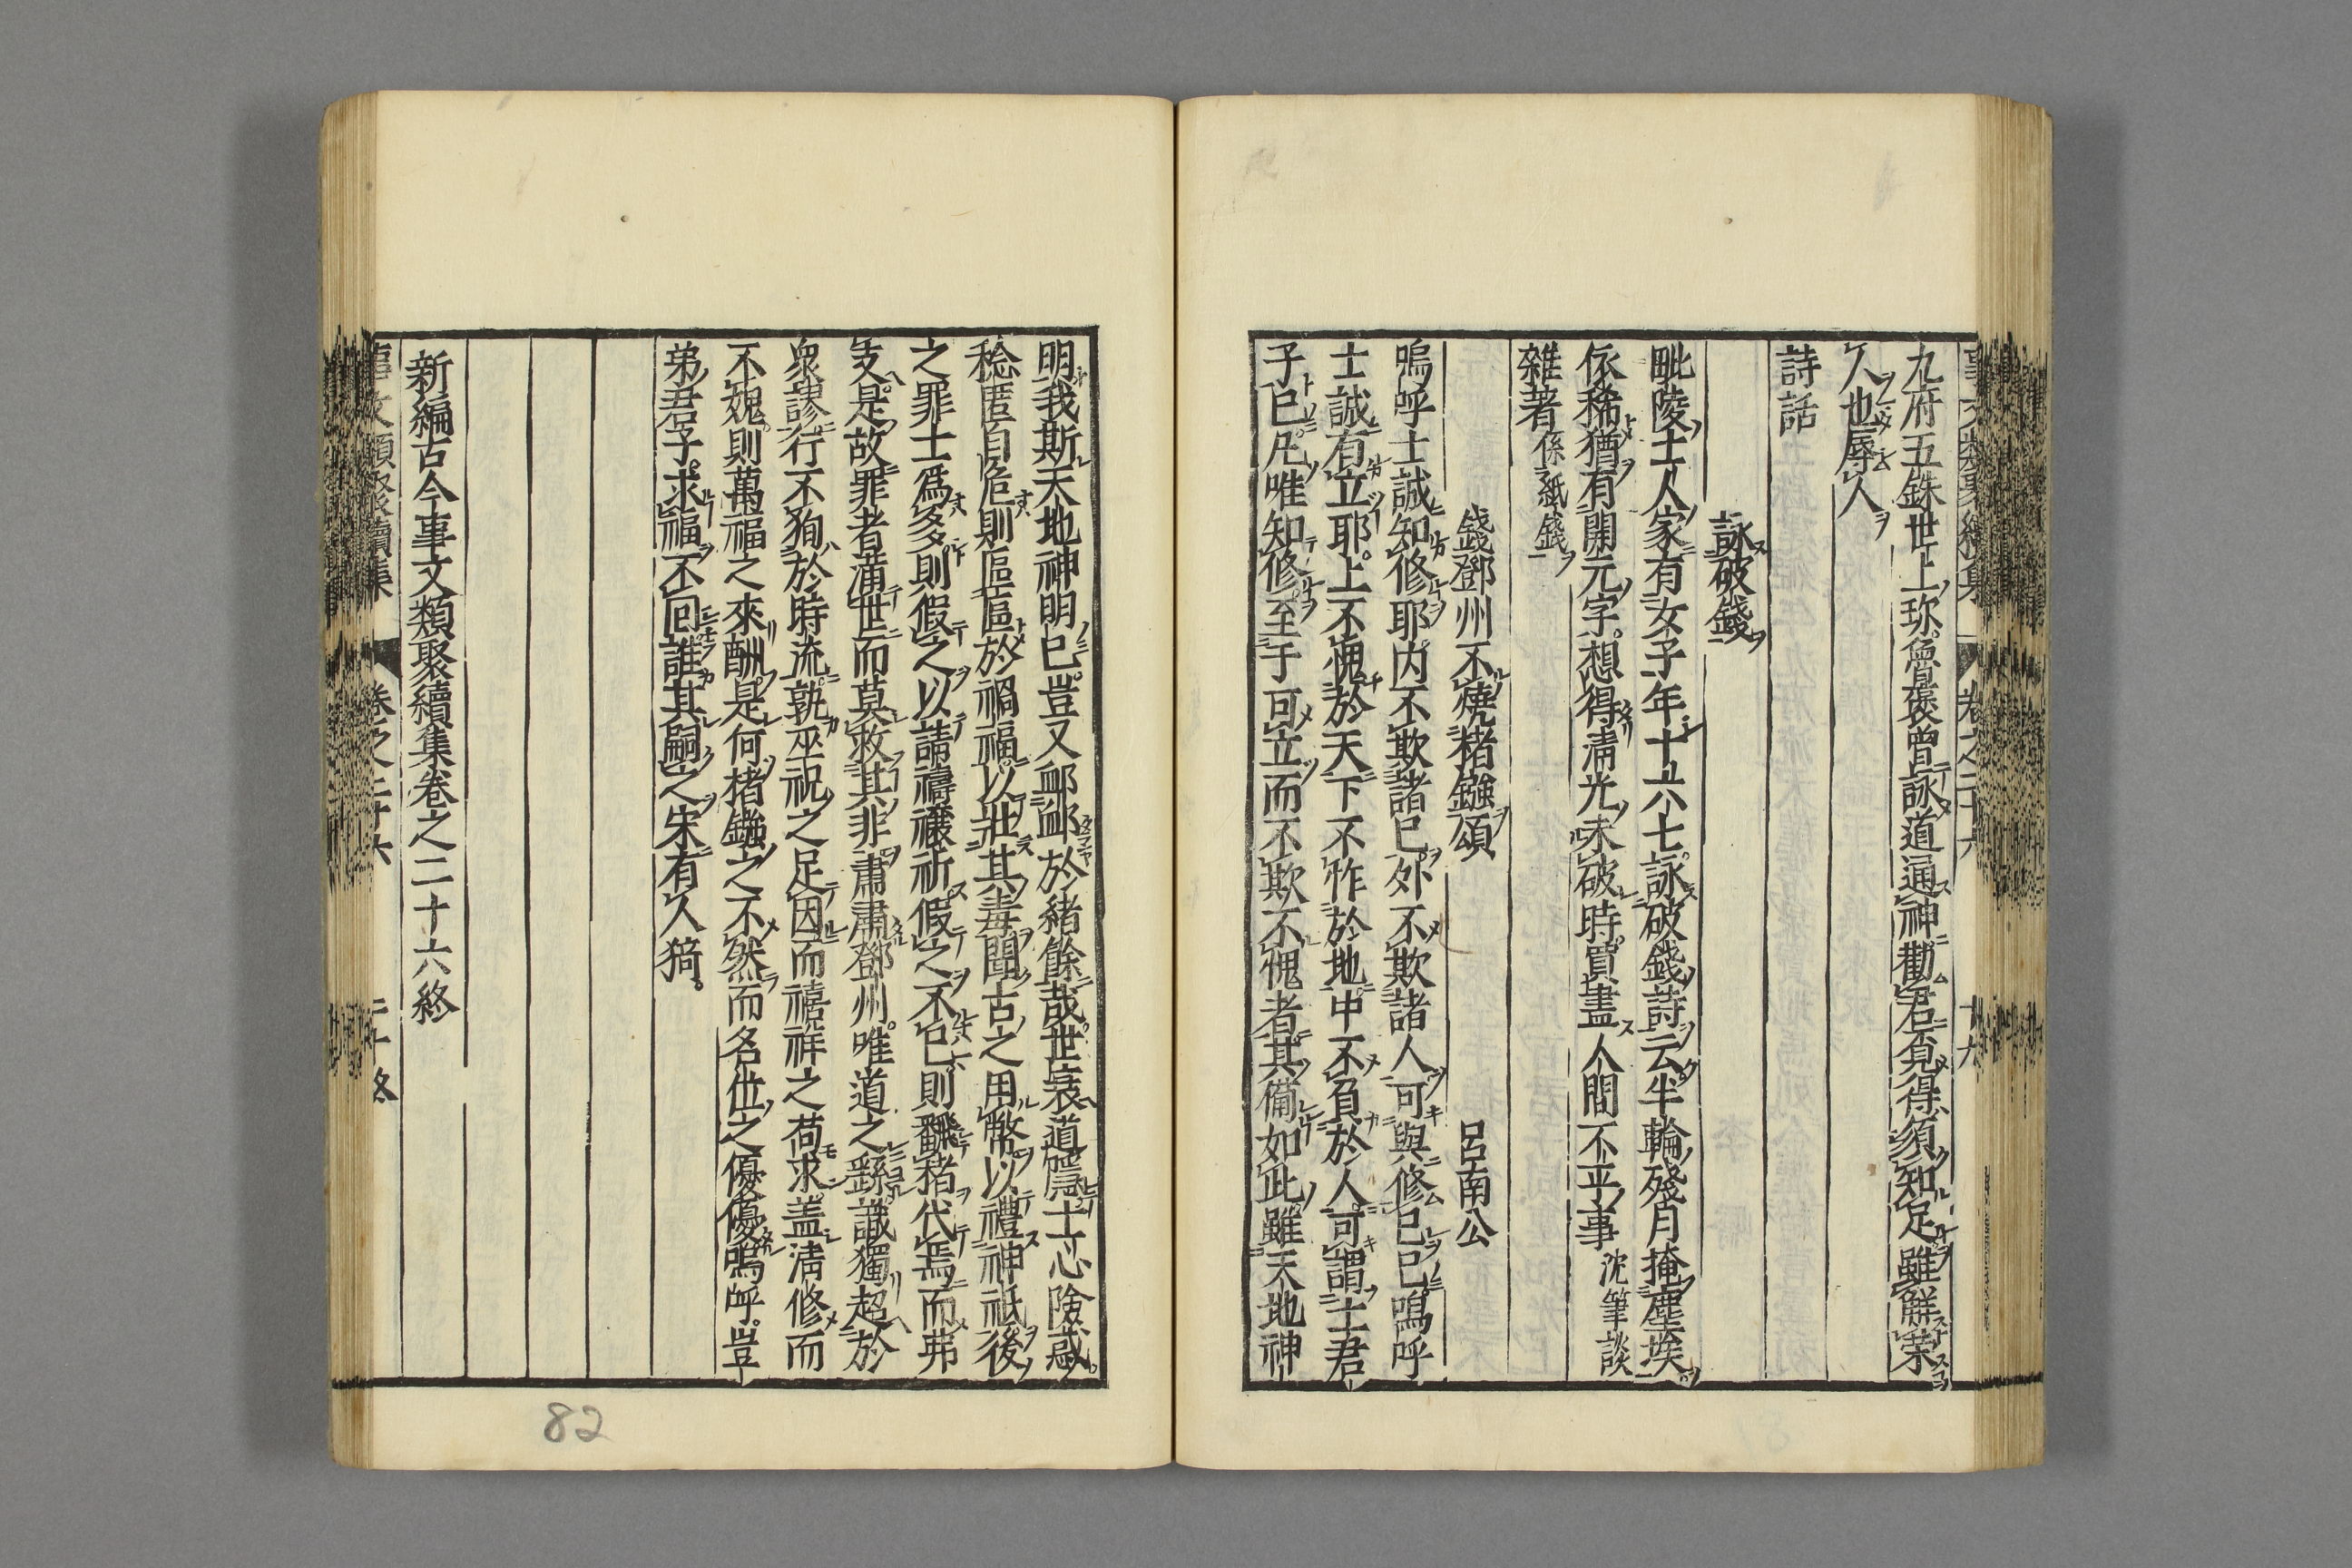 九府五銖世上珍魯褒曾詠道通神勸君覔得須知足雖解榮
人也辱人
詩話
詠破錢
毗陵士人家有女子年十六七詠破錢詩云半輪殘月掩塵埃
依稀猶有開元字想得淸光未破時買盡人間不平事 沈筆談
雜著 係紙錢
錢鄧州不燒楮鏹頌 呂南公
嗚呼士誠知修耶内不欺諸已外不欺諸人可與修已已嗚呼
士誠有立耶上不愧於天下不怍於地中不負於人可謂士君
子已凡唯知修至于可立而不欺不愧者其備如此雖天地神
明我斯天地神明已豈又卹卹於緒餘哉世衰道隱士心險惑
稔匿自危則區區於禍福以壯其毒聞古之用幣以禮神祇後
之罪士爲多則假之以請禱禳祈假之不已則翻楮代焉而弗
支是故罪者滿世而莫救其非肅肅鄧州唯道之繇識獨超於
衆謬行不狥於時流孰巫祝之足因而禧祥之苟求盖淸修而
不愧則萬福之來酬是何楮鏹之不然而名位之優優嗚呼豈
弟君子求福不回誰其嗣之宋有人猗
新編古今事文類聚續集卷之二十六終
事文類聚續集 卷之二十六 二十終